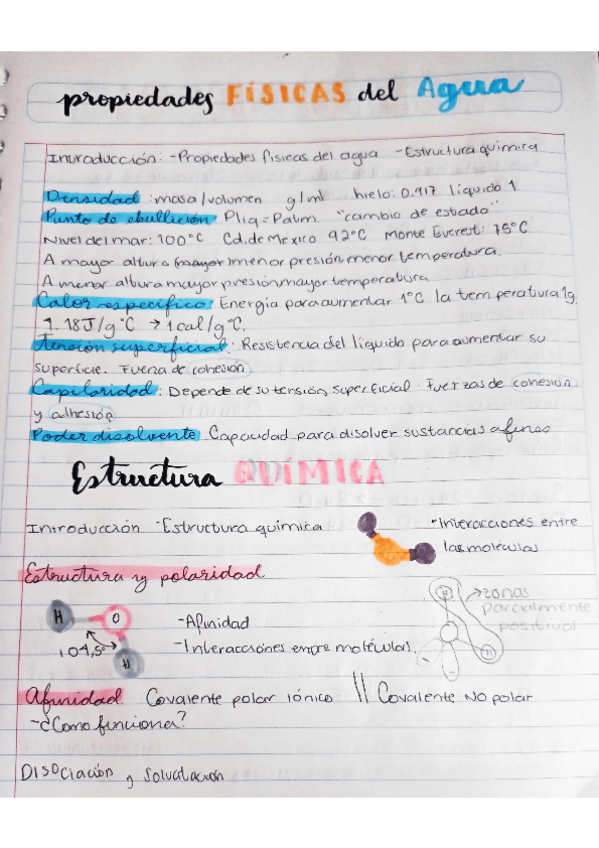 propiedades FÍSICAS del Agua
Introducción: -Propiedades fisicas del agua -Estructura química
Densidad: masa/volumen g/ml hielo: 0.917 líquido 1
Punto de ebullición: Pliq = Patm. "cambio de estado"
Nivel del mar: 100°C Cd. de México 92°C Monte Everest: 75°C
A mayor altura (mayor) menor presión menor temperatura.
A menor altura mayor presión mayor temperatura.
Calor especifico: Energía para aumentar 1°C la temperatura 1g.
1.18J/g°C → 1 cal/g°C.
Tensión superficial: Resistencia del líquido para aumentar su
superficie. Fuerza de cohesión
Capilaridad: Depende de su tensión superficial. Fuerzas de cohesión
y adhesión
Poder disolvente Capacidad para disolver sustancias afines
Estructura QUÍMICA
Introducción -Estructura química
-Interacciones entre
las moléculas
Estructura y polaridad
H O
104,5
H
-Afinidad
-Interacciones entre moléculas.
H
H
- -
→zonas
parcialmente
positival
Afinidad Covalente polar iónico || Covalente No polar
-¿Como funciona?
Disociación y solvatación